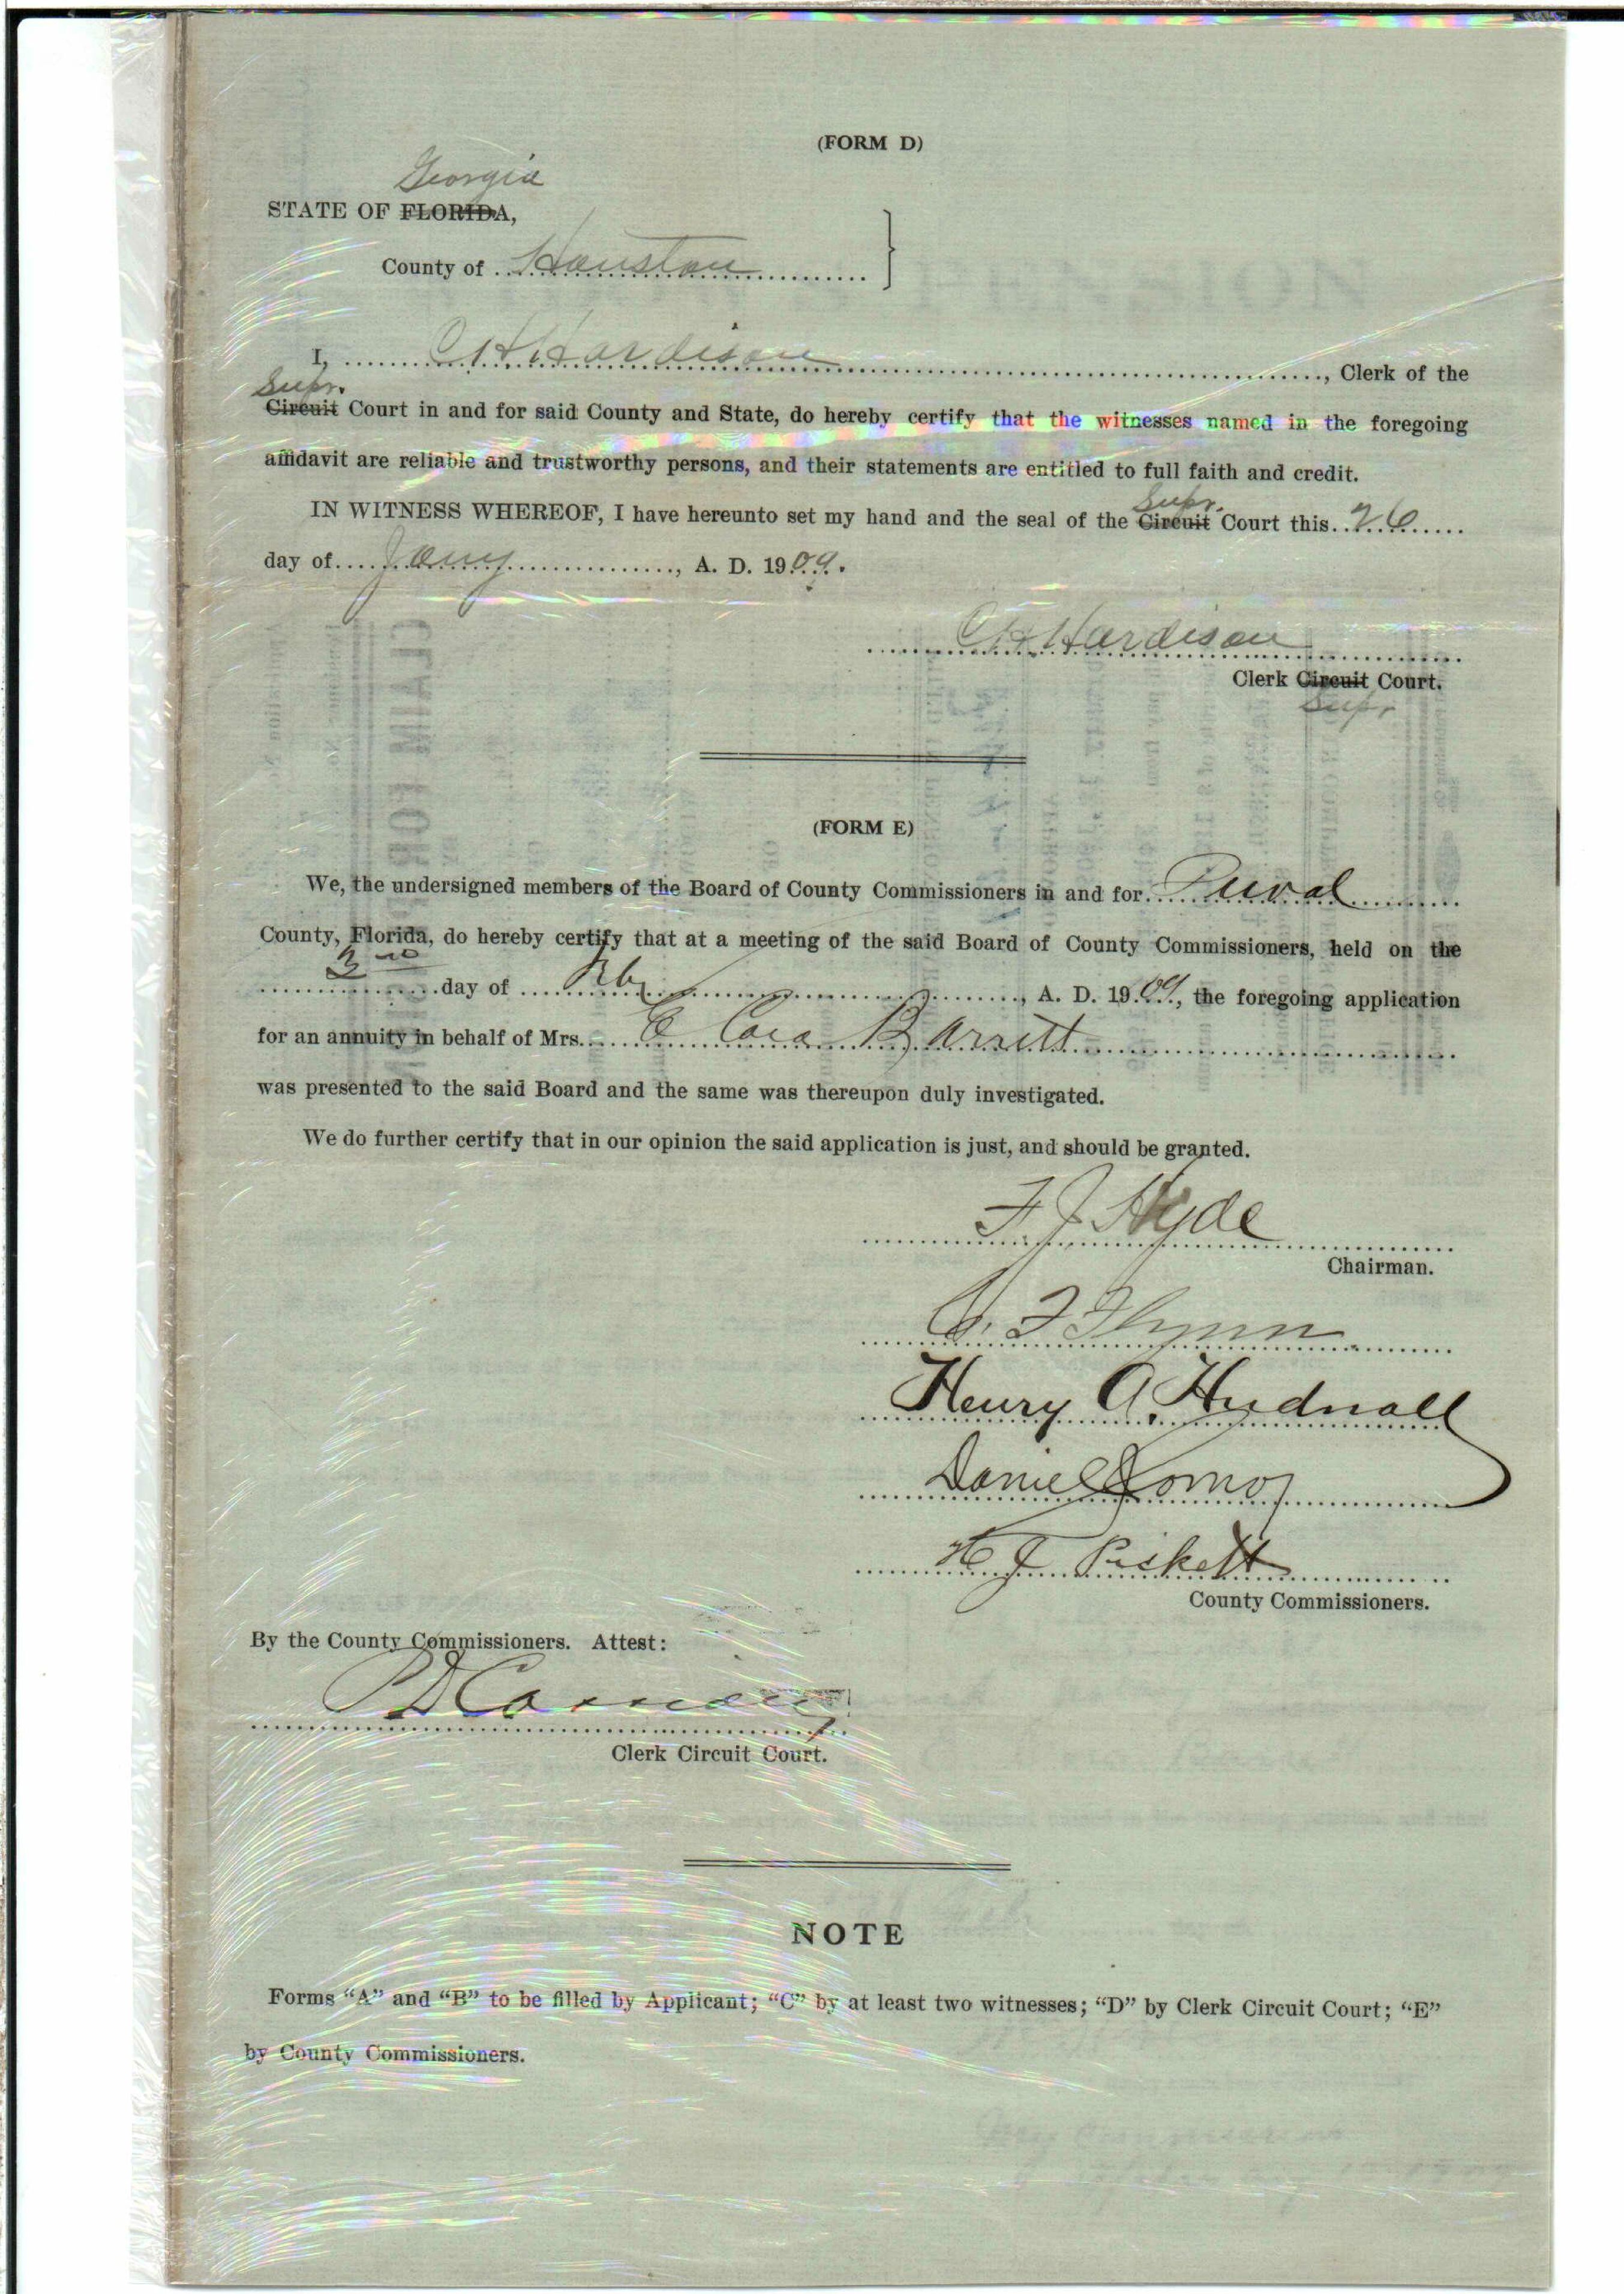 (FORM D)
Georgia
STATE OF FLORIDA,
County of Houston
I, C H Hardison, Clerk of the
Supr.
Circuit Court in and for said County and State, do hereby certify that the witnesses named in the foregoing
affidavit are reliable and trustworthy persons, and their statements are entitled to full faith and credit.
Supr.
IN WITNESS WHEREOF, I have hereunto set my hand and the seal of the Circuit Court this 26
day of Jany, A. D. 1909.
C H Hardison
Clerk Circuit Court.
Supr
(FORM E)
We, the undersigned members of the Board of County Commissioners in and for Duval
County, Florida, do hereby certify that at a meeting of the said Board of County Commissioners, held on the
3rd day of Feby, A. D. 1909, the foregoing application
for an annuity in behalf of Mrs. E Cora Barrett
was presented to the said Board and the same was thereupon duly investigated.
We do further certify that in our opinion the said application is just, and should be granted.
F J Hyde
Chairman.
F Flynn
Henry A. Hudnall
Daniel
H J Pickett
County Commissioners.
By the County Commissioners. Attest:
P D Cassidey
Clerk Circuit Court.
NOTE
Forms “A” and “B” to be filled by Applicant; “C” by at least two witnesses; “D” by Clerk Circuit Court; “E”
by County Commissioners.